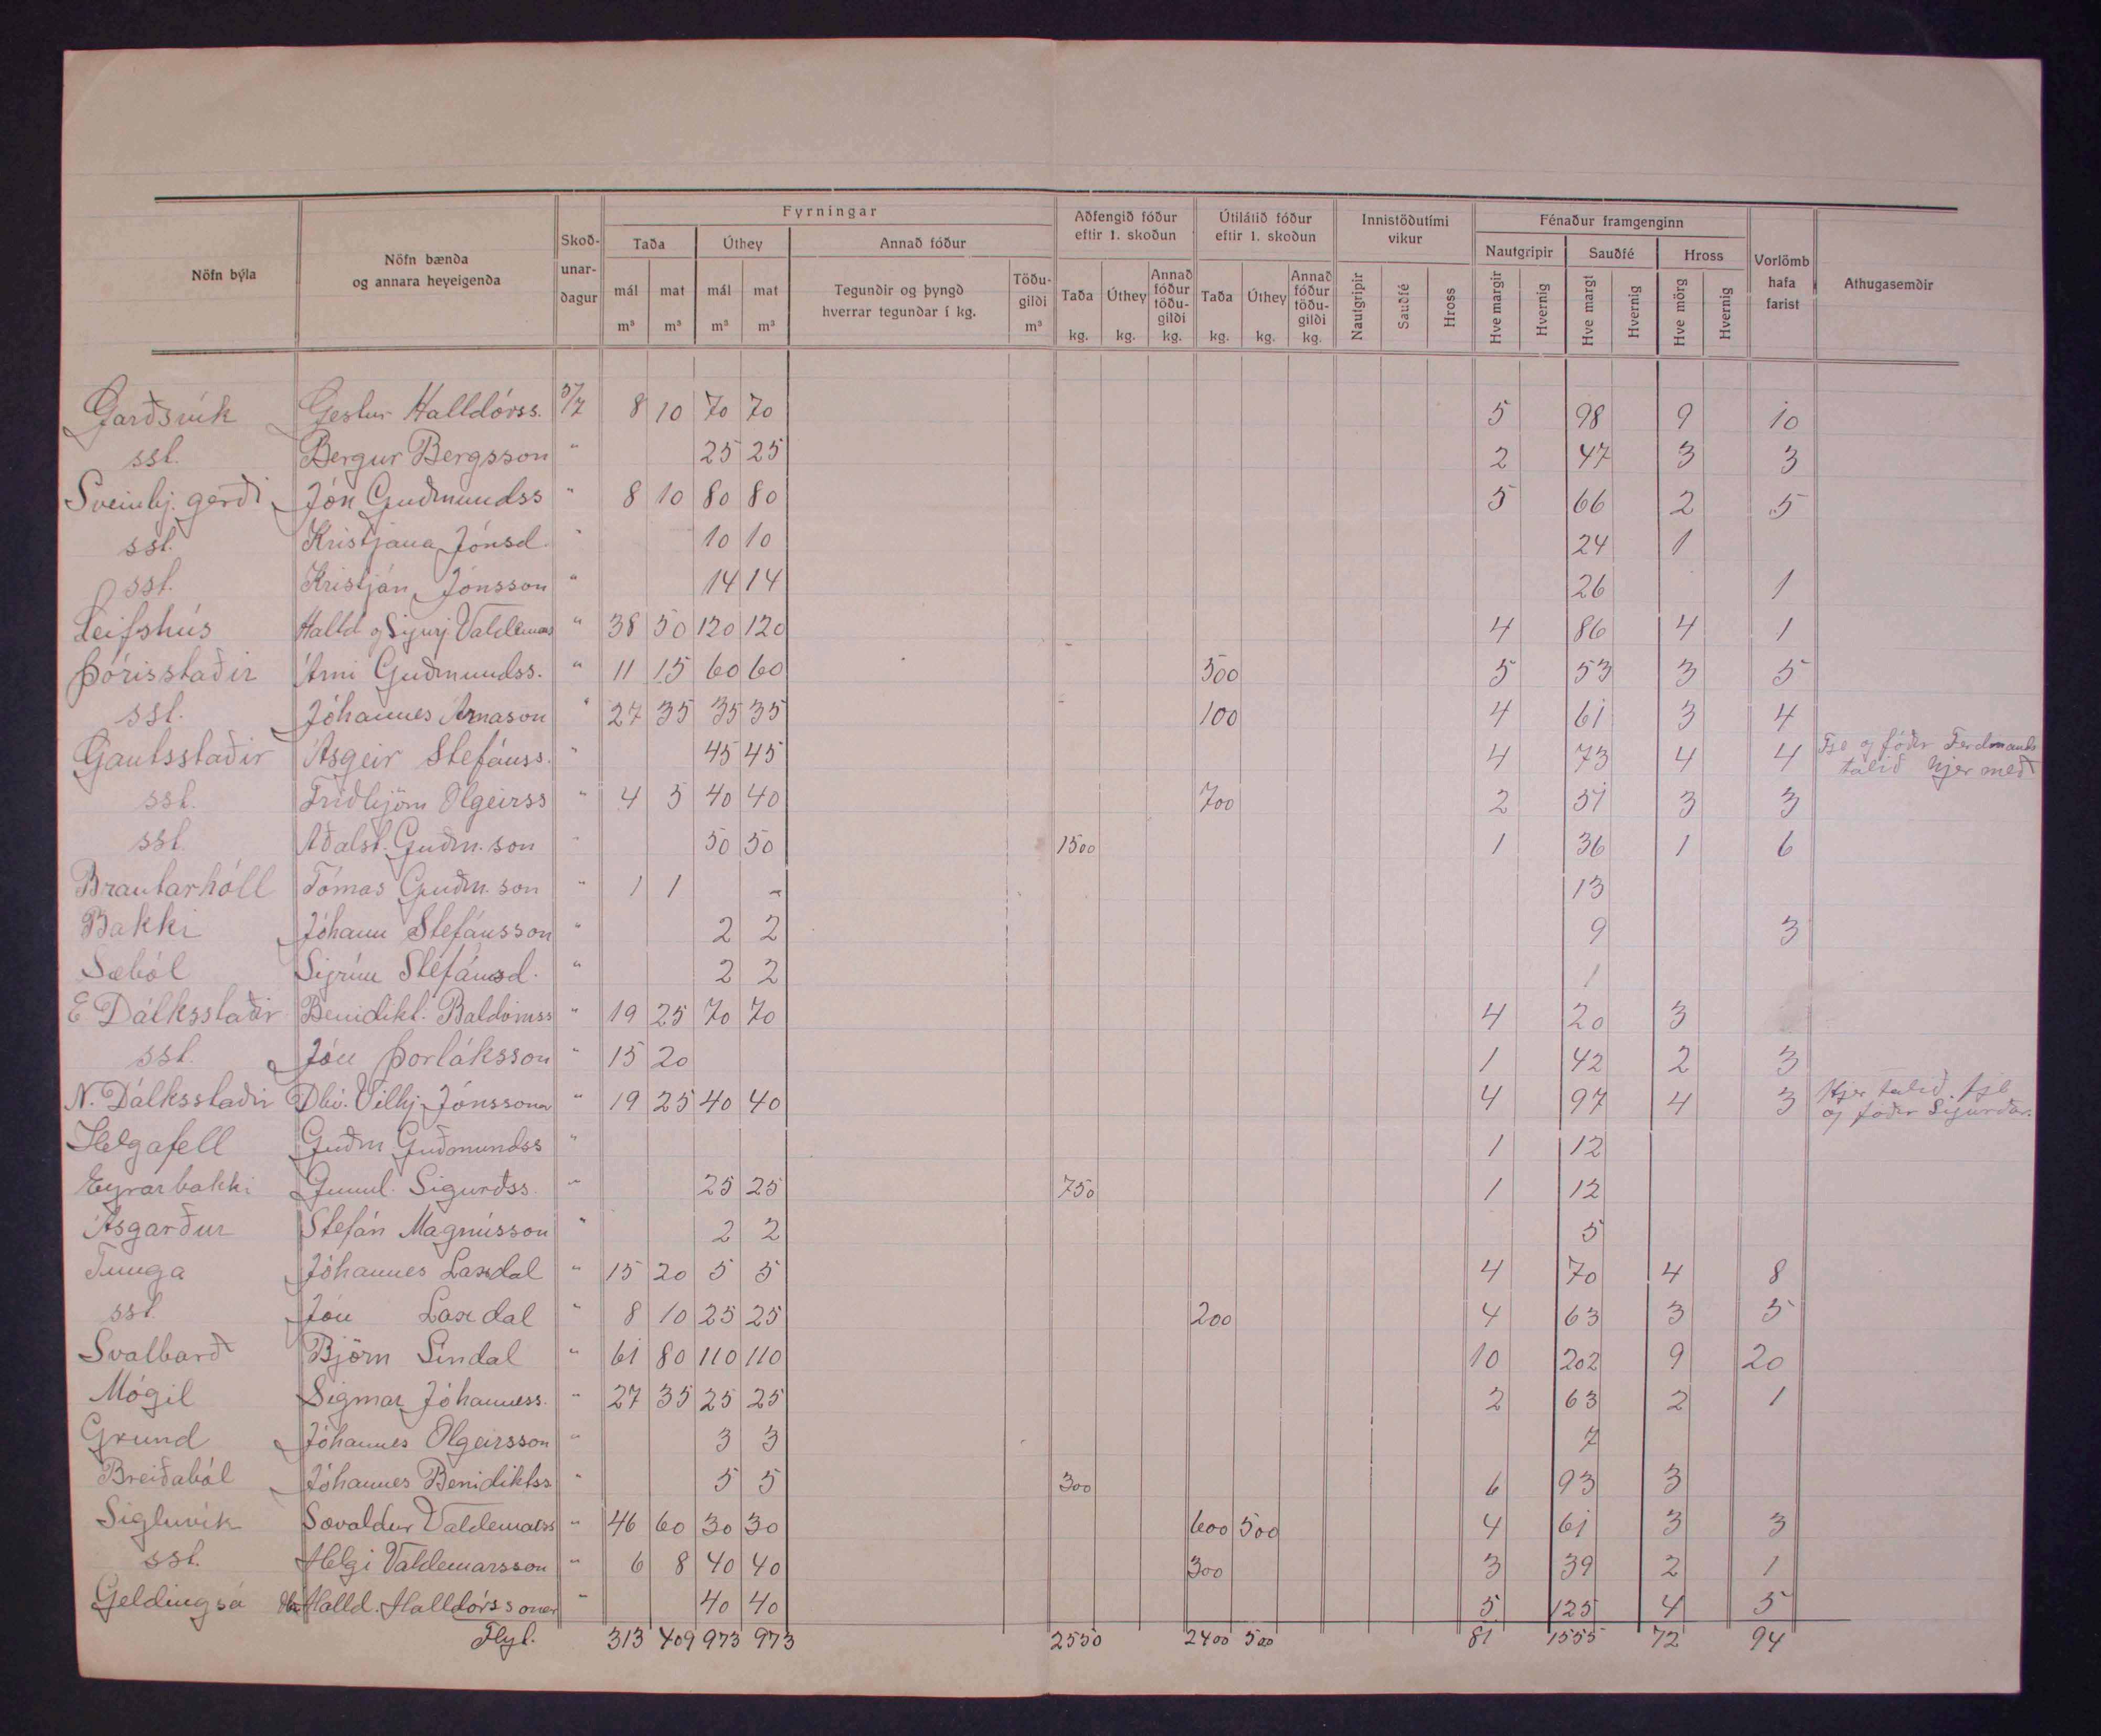 Fyrningar
Aðfengið fóður eftir 1. skoðun
Útilátið fóður eftir 1. skoðun
Innistöðutími vikur
Fénaður framgenginn
Nöfn býla
Nöfn bænda og annara heyeigenda
Skoð-unar-dagur
Taða
Úthey
Annað fóður
Nautgripir
Sauðfé
Hross
Vorlömb hafa farist
Athugasemdir
mál m³ mat m³ mál m³ mat m³
Tegundir og þyngd hverrar tegundar í kg.
Töðu-gildi m³
Taða kg. Úthey kg. Annað fóður töðu-gildi kg.
Taða kg. Úthey kg. Annað fóður töðu-gildi kg.
Nautgripir Sauðfé Hross
Hve margir Hvernig Hve margt Hvernig Hve mörg Hvernig
Garðsvík Gestur Halldórss. 5/7 8 10 70 70 5 98 9 10
sst. Bergur Bergsson " 25 25 2 47 3 3
Sveinbj.gerði Jón Guðmundss " 8 10 80 80 5 66 2 5
sst. Kristjana Jónsd. " 10 10 24 1
sst. Kristján Jónsson " 14 14 26 1
Leifshús Halld og Sigurj Valdemars " 38 50 120 120 4 86 4 1
Þórisstaðir Árni Guðmundss. " 11 15 60 60 500 5 53 3 5
sst. Jóhannes Árnason " 27 35 35 35 100 4 61 3 4
Gautsstaðir Ásgeir Stefánss. " 45 45 4 73 4 4 Fje og fóðr Ferdinands talið hjer með
sst. Friðbjörn Olgeirss " 4 5 40 40 700 2 51 3 3
sst. Aðalst. Guðm.son " 50 50 1500 1 36 1 6
Brautarhóll Tómas Guðm.son " 1 1 - 13
Bakki Jóhann Stefánsson " 2 2 9 3
Sæból Sigrún Stefánsd. " 2 2 1
E Dálksstaðir Benidikt Baldvinss " 19 25 70 70 4 20 3
sst. Jón Þorláksson " 15 20 1 42 2 3
N. Dálksstaðir Dbú. Vilhj Jónssonar " 19 25 40 40 4 97 4 3 Hjer talið fje og fóðr Sigurðar.
Helgafell Guðm Guðmundss " 1 12
Eyrarbakki Gunnl. Sigurðss. " 25 25 750 1 12
Ásgarður Stefán Magnússon " 2 2 5
Tunga Jóhannes Laxdal " 15 20 5 5 4 70 4 8
sst. Jón Laxdal " 8 10 25 25 200 4 63 3 5
Svalbarð Björn Líndal " 61 80 110 110 10 202 9 20
Mógil Sigmar Jóhanness. " 27 35 25 25 2 63 2 1
Grund Jóhannes Olgeirsson " 3 3 7
Breiðaból Jóhannes Benidiktss " 5 5 300 6 93 3
Sigluvík Sævaldur Valdemarss " 46 60 30 30 600 500 4 61 3 3
sst. Helgi Valdemarsson " 6 8 40 40 300 3 39 2 1
Geldingsá Halld. Halldórssonar " 40 40 5 125 4 5
Flyt. 313 409 973 973 2550 2400 500 81 1555 72 94